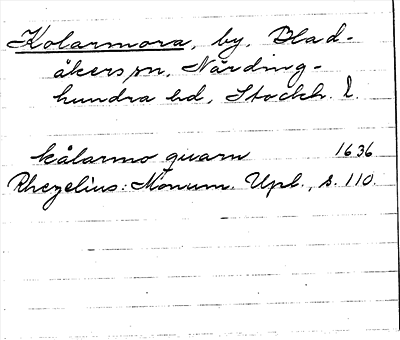 Kolarmora, by, Blad-
åkers sn, Närding-
hundra hd, Stockh. l.
kålarmo quarn 1636
Rhezelius: Monum. Upl., s. 110.